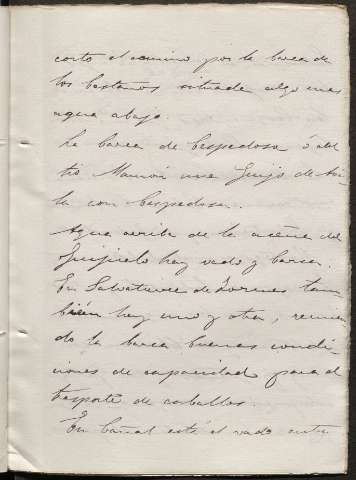 corto el camino por la barca de
los Castaños situada algo mas
agua abajo.
La barca de Cespedosa ó del
tio Mamon une Guijo de Avi-
la con Cespedosa.
Agua arriba de la aceña del
Guijuelo hay vado y barca.
En Salvatierra de Tormes tam-
bién hay uno y otra, reunien-
do la barca buenas condi-
ciones de capacidad para el
trasporte de caballos.
En Cañal está el vado entre